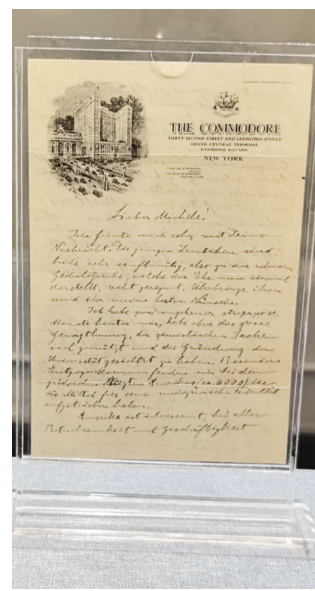 THE COMMODORE
FORTY-SECOND STREET AND LEXINGTON AVENUE
GRAND CENTRAL TERMINAL
PERSHING SQUARE
NEW YORK
Lieber Michele!
Ich freute mich sehr mit Deiner
Nachricht. Die jungen Leutchen sind
beide sehr sanftmütig, also zu der
Geduldsprobe, welche die Ehe nun einmal
darstellt, recht geeignet. Überbringe ihnen
und meine besten Wünsche.
Ich habe zwei ungeheuer strapaziöse
Monate hinter mir, habe aber die grosse
Genugthuung, der zionistischen Sache
genützt und die Gründung der
Universität gesichert zu haben. Besonderes
Entgegenkommen fanden wir bei den
jüdischen Ärzten Amerikas (ca 6000), die
die Mittel für eine medizinische Fakultät
aufgetrieben haben.
Amerika ist interessant, bei aller
Betriebsamkeit und Geschäftigkeit